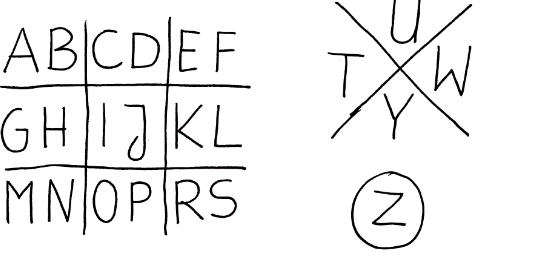 AB CD EF
GH IJ KL
MN OP RS
U
T W
Y
Z